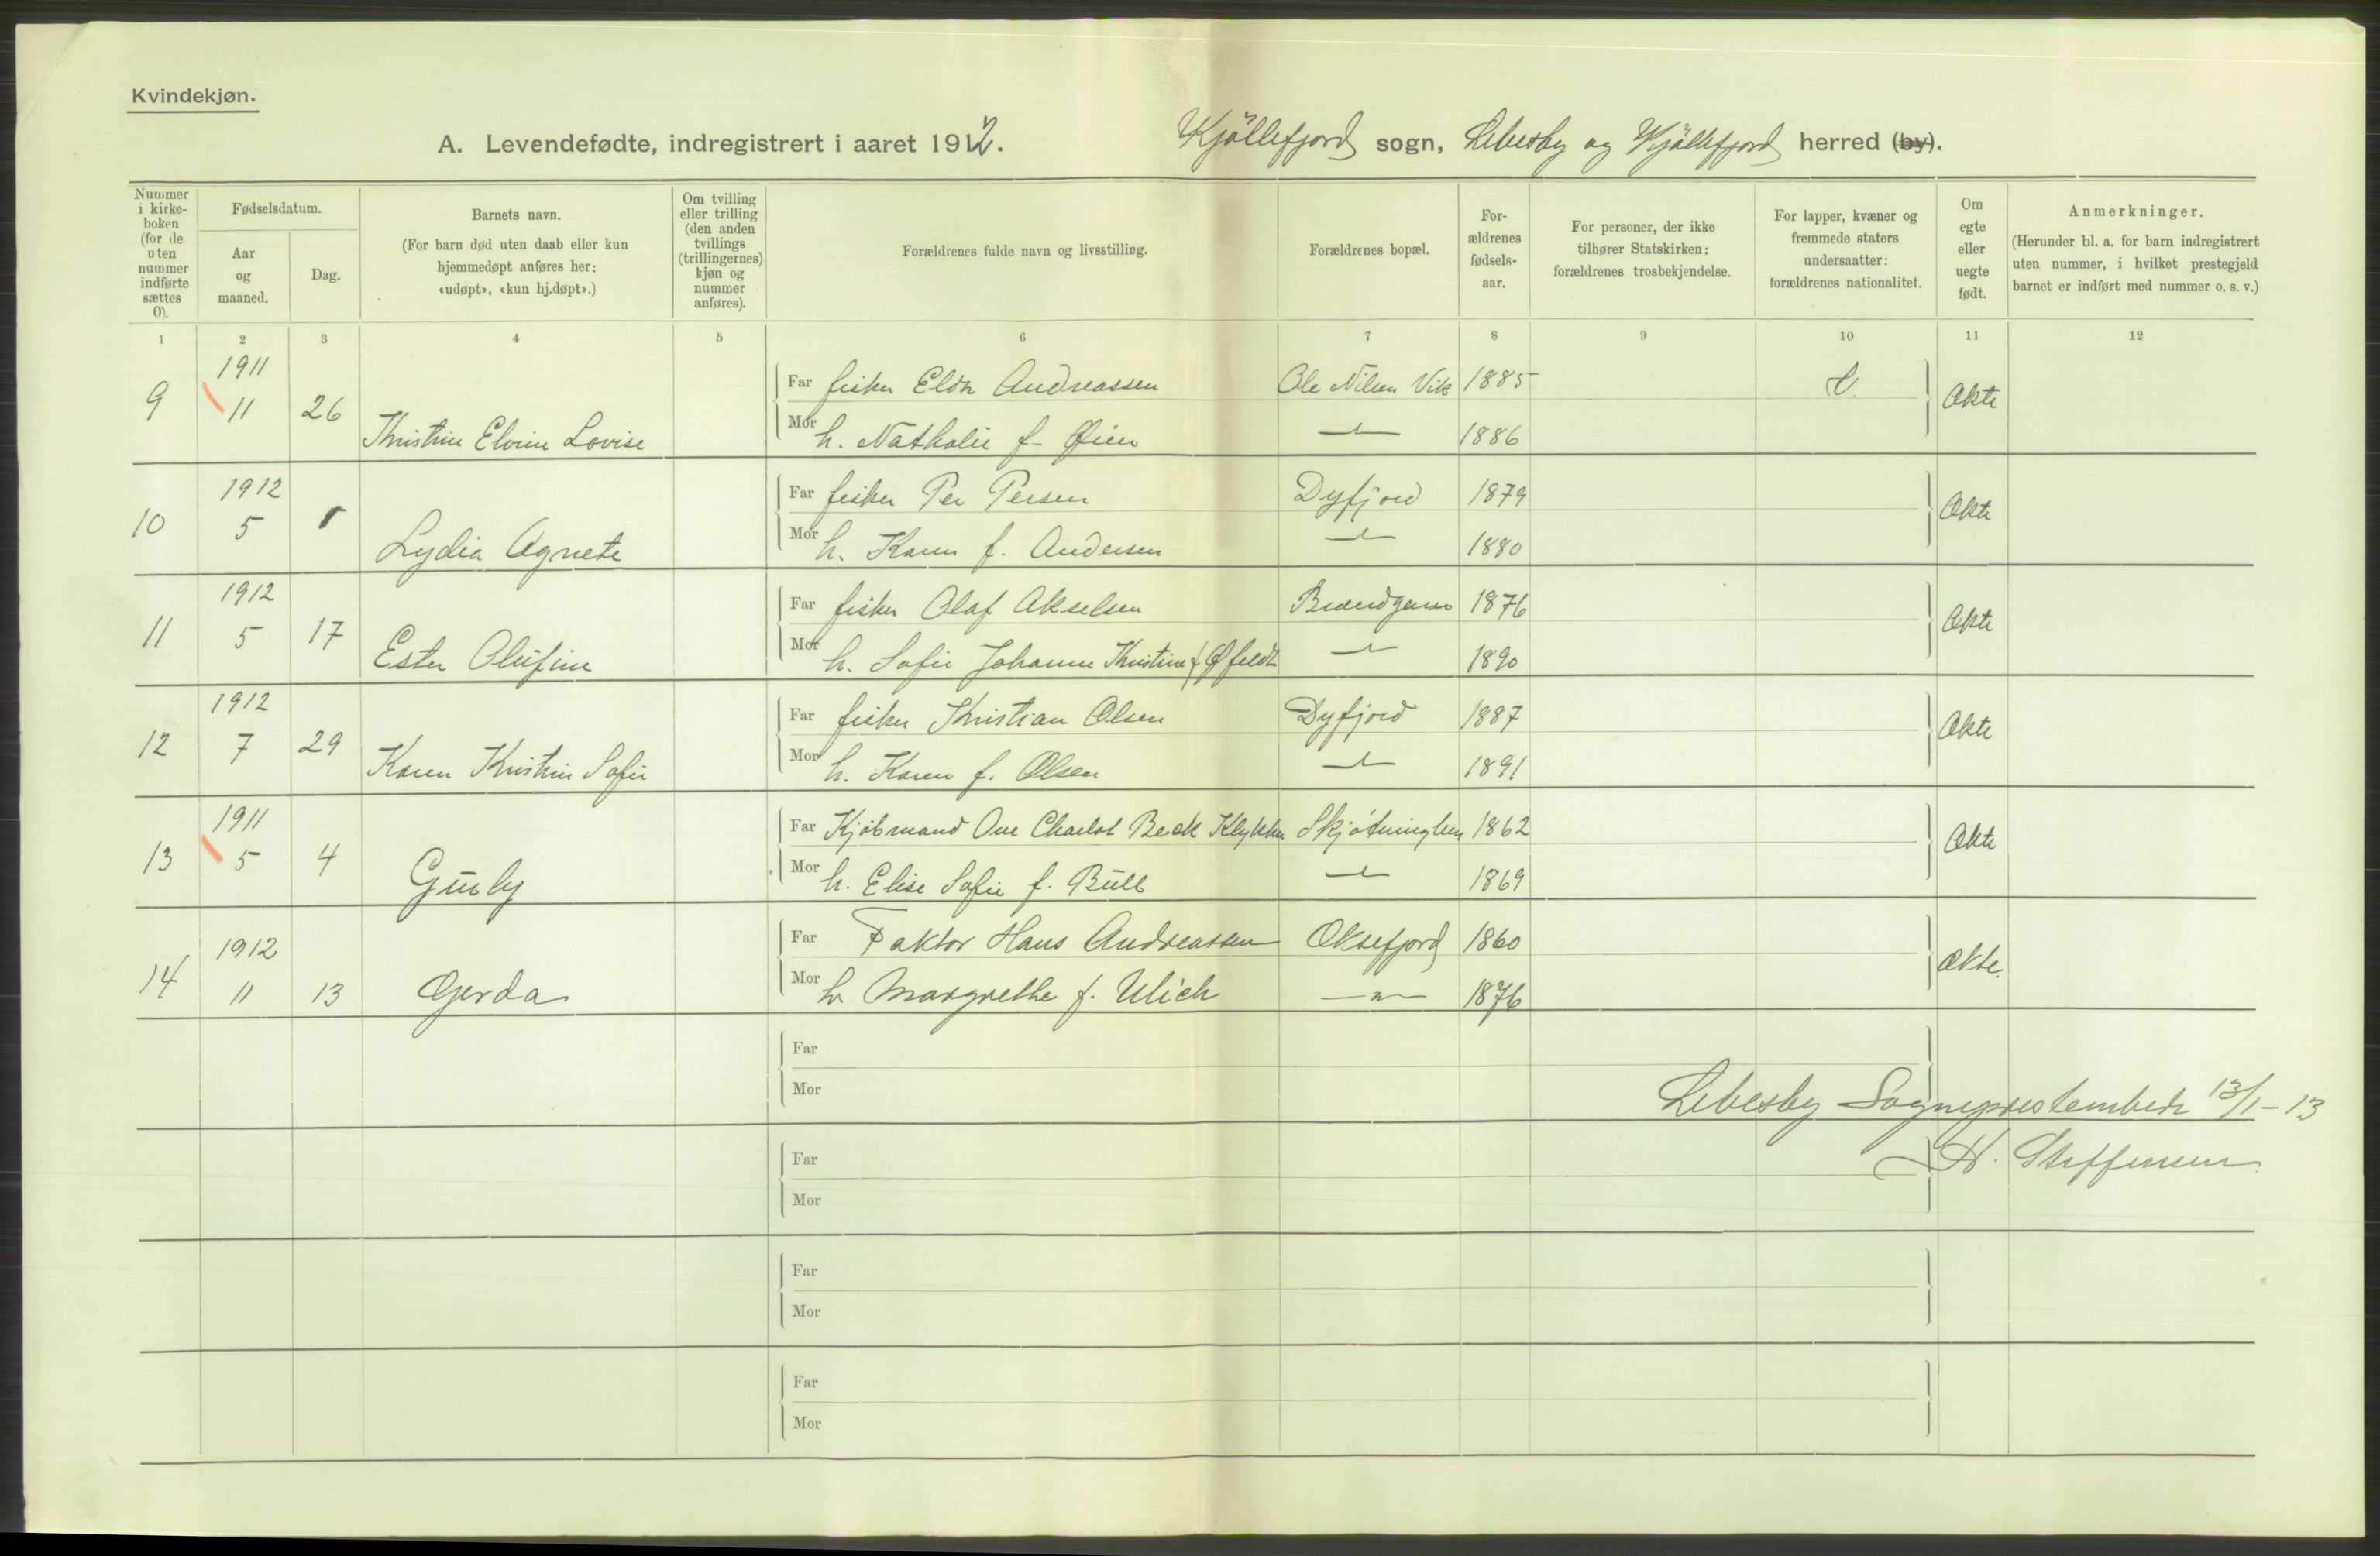 Kvindekjøn.
A. Levendefødte, indregistrert i aaret 1912. Kjöllefjord sogn, Lebesby og Kjöllefjord herred (by).
Nummer i kirkeboken (for de uten nummer indførte sættes 0).
Fødselsdatum.
Aar og maaned.
Dag.
Barnets navn.
(For barn død uten daab eller kun hjemmedøpt anføres her: «udøpt», «kun hj.døpt».)
Om tvilling eller trilling (den anden tvillings (trillingernes) kjøn og nummer anføres).
Forældrenes fulde navn og livsstilling.
Forældrenes bopæl.
Forældrenes fødselsaar.
For personer, der ikke tilhører Statskirken: forældrenes trosbekjendelse.
For lapper, kvæner og fremmede staters undersaatter: forældrenes nationalitet.
Om egte eller uegte født.
Anmerkninger.
(Herunder bl. a. for barn indregistrert uten nummer, i hvilket prestegjeld barnet er indført med nummer o. s. v.)
1 2 3 4 5 6 7 8 9 10 11 12
9 1911 11 26 Kristine Elvine Lovise
Far fisker Andreassen Ole Nilsen Vik 1885 Ekte
Mor h. Nathalie f. Øien 1886
10 1912 5 Lydia Agnete
Far fisker Per Persen Dyfjord 1879 Ekte
Mor h. Karen f. Andersen 1880
11 1912 5 17 Ester Olufine
Far fisker Olaf Akselsen 1876 Ekte
Mor h. Sofie Johanne Kristine f. Øfeldt 1890
12 1912 7 29 Karen Kristine Sofie
Far fisker Kristian Olsen Dyfjord 1887 Ekte
Mor h. Karen f. Olsen 1891
13 1911 5 4 Gurly
Far Kjøbmand Ove Charlot Beck Klykken Skjøtningberg 1862 Ekte
Mor h. Elise Sofie f. Bull 1869
14 1912 11 13 Gerda
Far Faktor Hans Andreassen Oksefjord 1860 Ekte.
Mor h. Margrethe f. Ulich —"— 1876
Far
Mor
Lebesby Sogneprestembede 13/1-13
H. Steffensen.
Far
Mor
Far
Mor
Far
Mor